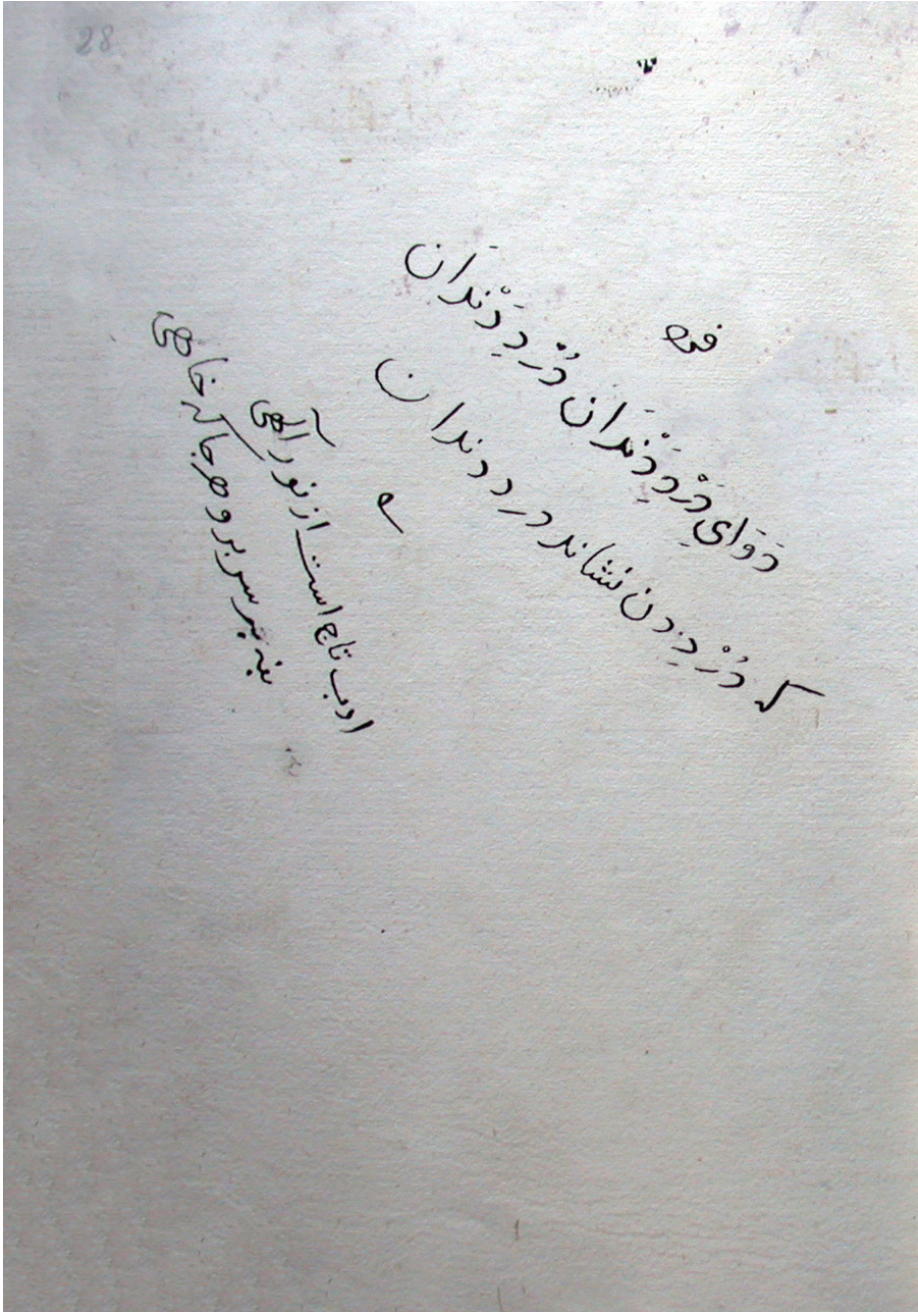 28
فرد
دَوَايِ دَرْدِ دَنْدَان دُرْدِ دَنْدَان
که دُرْدِ دن نشاند درد دندان
ادب تاج است از نور آلهی
بنه بر سر برو هر جا که خاهی